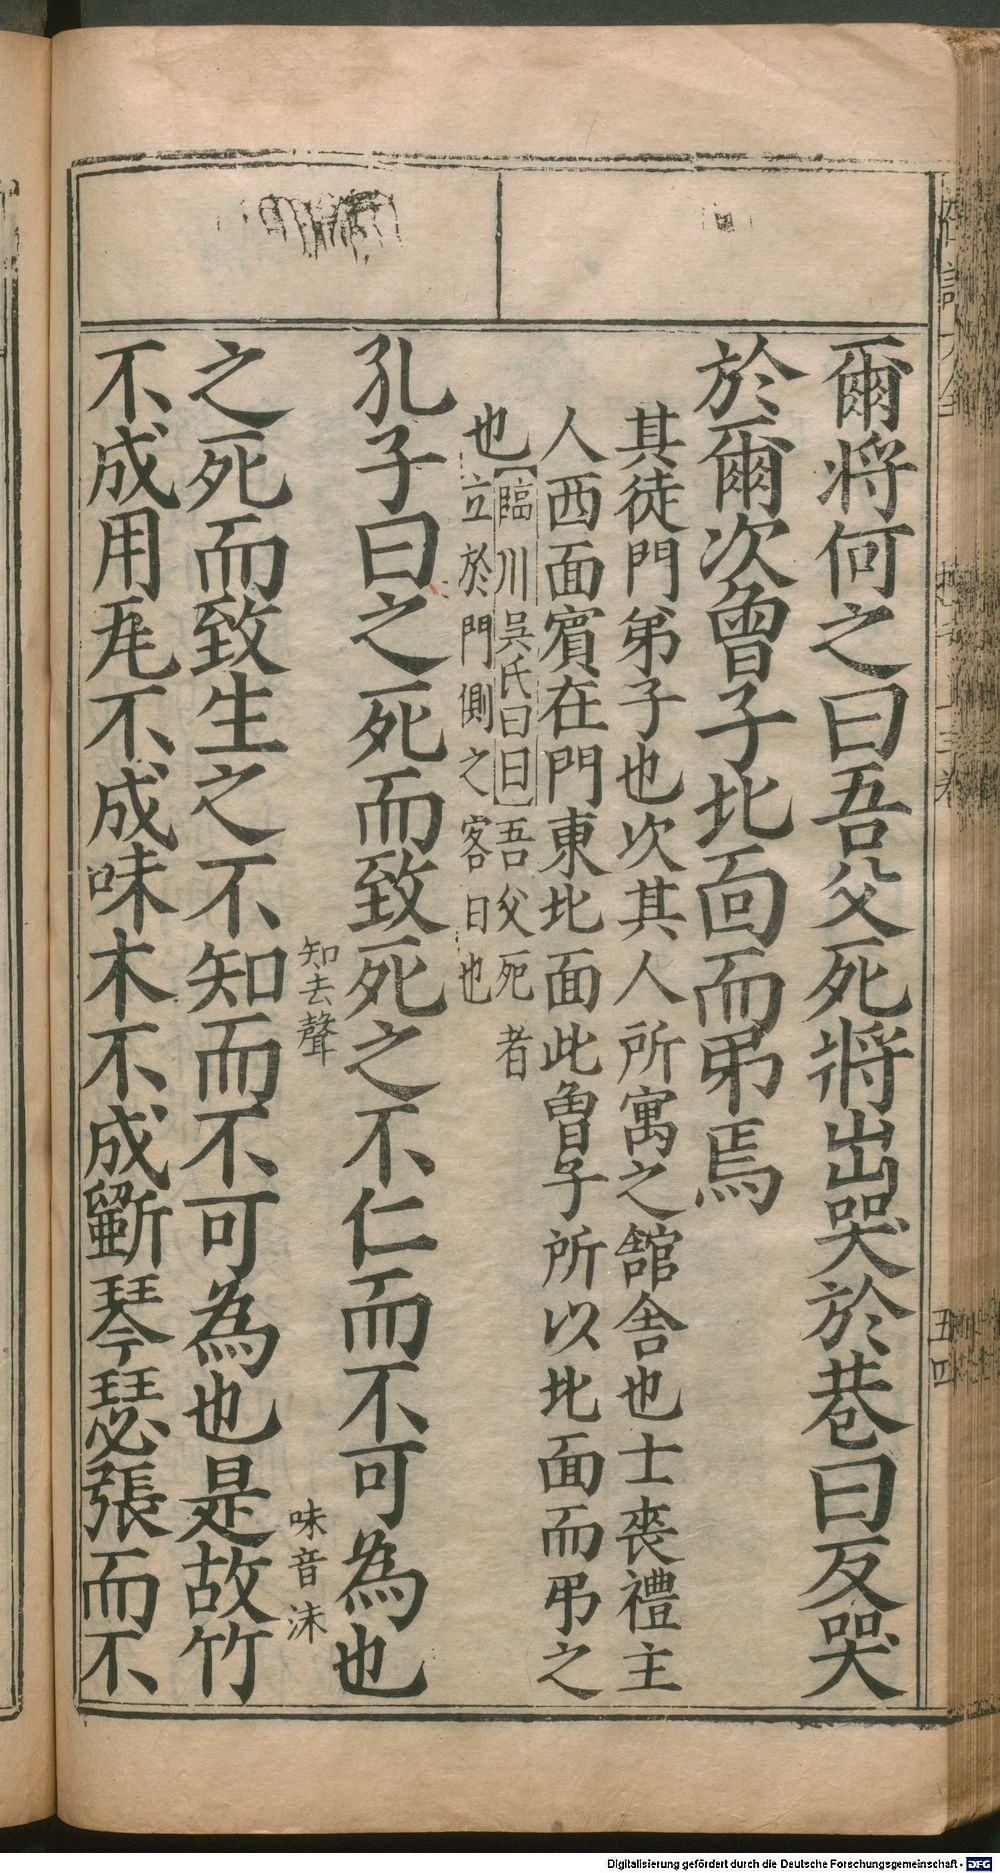 爾將何之曰吾父死將出哭於巷曰反哭
於爾次曾子北面而弔焉
其徒門弟子也次其人所寓之館舍也士喪禮主
人西面賓在門東北面此曾子所以北面而弔之
也
臨川吳氏曰曰吾父死者
立於門側之客曰也
孔子曰之死而致死之不仁而不可為也
知去聲
味音沬
之死而致生之不知而不可為也是故竹
不成用瓦不成味木不成斲琴瑟張而不
五四
Digitalisierung gefördert durch die Deutsche Forschungsgemeinschaft - DFG